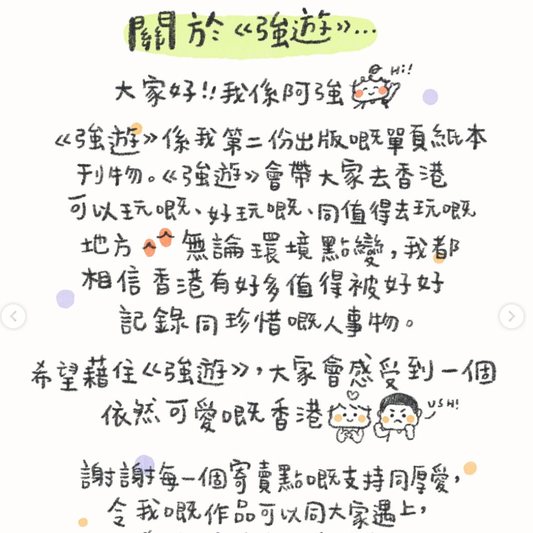 關於《強遊》...
大家好!!我係阿強 Hi!
《強遊》係我第二份出版嘅單頁紙本
刊物。《強遊》會帶大家去香港
可以玩嘅、好玩嘅、同值得去玩嘅
地方 無論環境點變,我都
相信香港有好多值得被好好
記錄同珍惜嘅人事物。
希望藉住《強遊》,大家會感受到一個
依然可愛嘅香港 USH!
謝謝每一個寄賣點嘅支持同厚愛,
令我嘅作品可以同大家遇上,